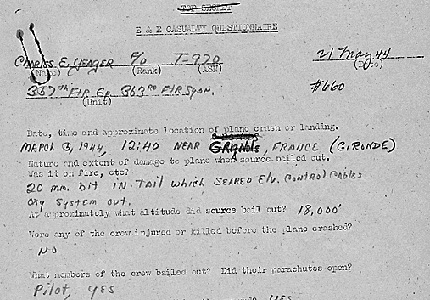 TOP SECRET
E & E CASUALTY QUESTIONNAIRE
Charles E. Yeager F/O T-770 21 May 44
(Name) (Rank) (ASN) (Date)
357th Ftr. Gp. 363rd Ftr Sqn. #660
(Unit)
Date, time and approximate location of plane crash or landing.
March 5, 1944, 12:40 near , France (Gironde)
Nature and extent of damage to plane when source bailed out.
Was it on fire, etc?
20 mm. hit in tail which seared Elv. control cables
Oxy system out.
At approximately what altitude did source bail out? 18,000'
Were any of the crew injured or killed before the plane crashed?
No
What members of the crew bailed out? Did their parachutes open?
Pilot, yes
yes